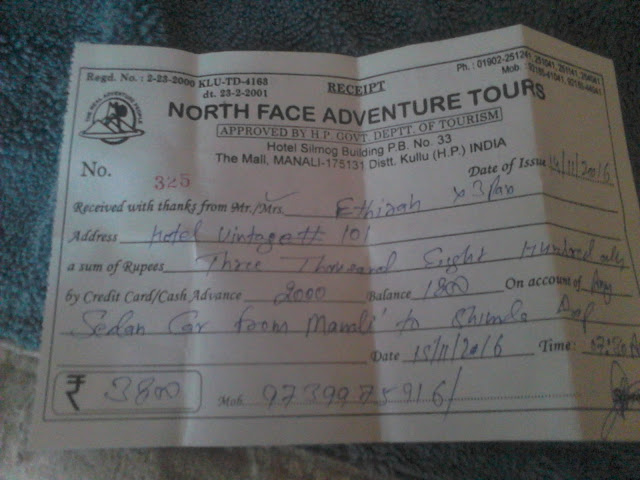 Regd. No. : 2-23-2000 KLU-TD-4163
dt. 23-2-2001
RECEIPT
Ph. : 01902-251241, 251041,
Mob.
NORTH FACE ADVENTURE TOURS
APPROVED BY H.P. GOVT. DEPTT. OF TOURISM
Hotel Silmog Building P.B. No. 33
The Mall, MANALI-175131 Distt. Kullu (H.P.) INDIA
No. 325
Date of Issue 14/11/2016
Received with thanks from Mr./Mrs. Ethirah x 3 Pax
Address Hotel Vintage # 101
a sum of Rupees Three Thousand Eight Hundred only
by Credit Card/Cash Advance 2000 Balance 1800 On account of
Sedan Car from Manali to Shimla
Date 15/11/2016 Time:
₹ 3800 Mob. 9739975916/